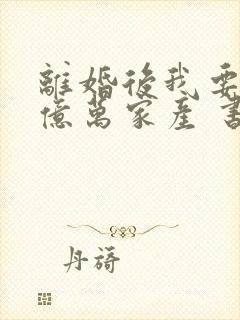 離婚後我要
億萬家產 書
丹旖